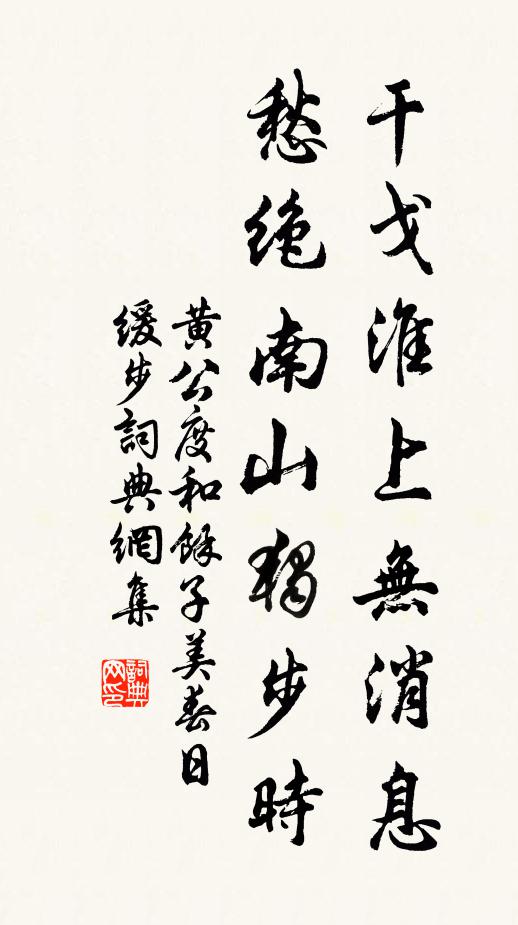 干戈淮上無消息
愁絕南山獨步時
黃公度和餘子美春日
緩步詞典網集
詞典網印